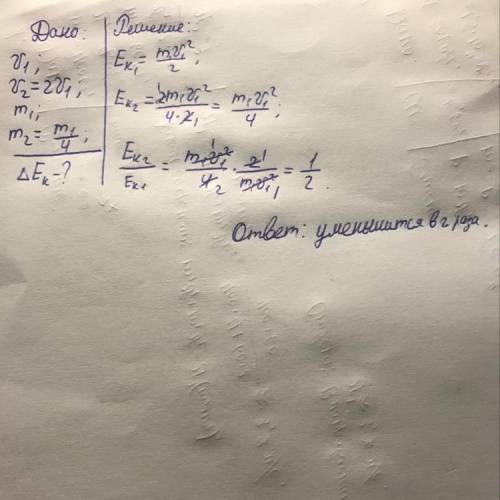 Дано:
v₁;
v₂=2v₁;
m₁;
m₂=m₁/4;
ΔEₖ-?
Решение:
Eₖ₁=m₁v₁²/2;
Eₖ₂=2m₁v₁²/4·2₁=m₁v₁²/4;
Eₖ₂/Eₖ₁=m₁v₁²/4₂·2¹/m₁v₁²₁=1/2.
Ответ: уменьшится в 2 раза.